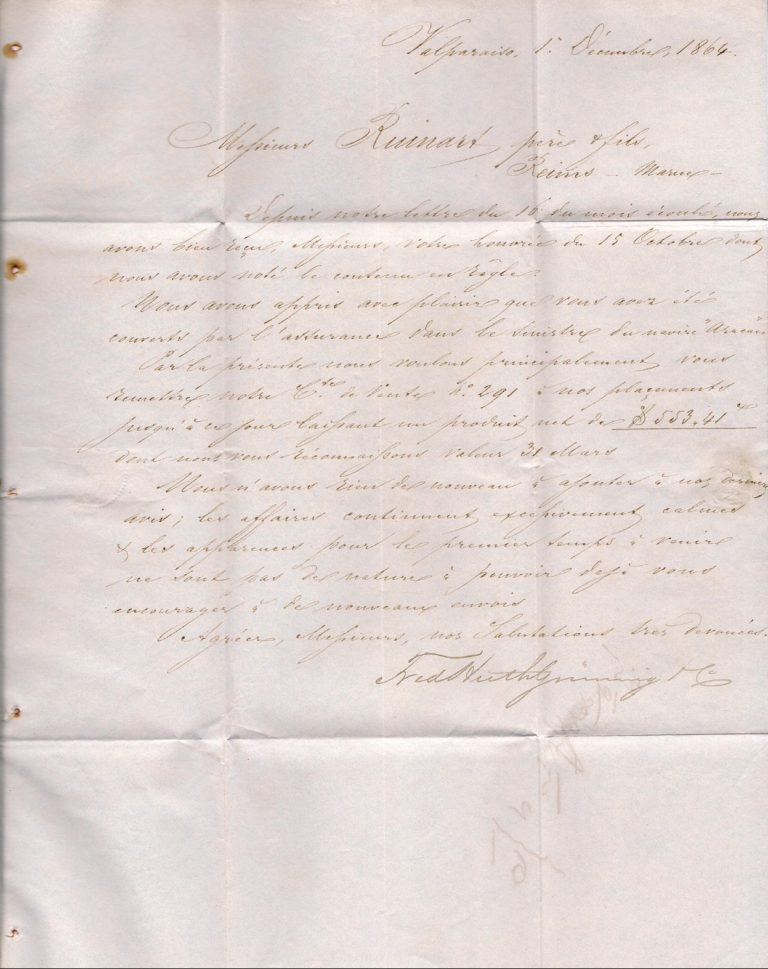 Valparaiso, 1r Décembre, 1864.
Messieurs Ruinart père & fils,
Reims - Marne -
Depuis notre lettre du 16 du mois écoulé, nous
avons bien reçu, Messieurs, votre honorée du 15 Octobre dont
nous avons noté le contenu en règle.
Nous avons appris avec plaisir que vous avez été
couverts par l'assurance dans le sinistre du navire
Par la présente nous voulons principalement vous
remettre notre Cte de Vente No. 291 à nos placements
jusqu'à ce jour laissant un produit net de $ 553.41
dont nous vous reconnaissons valeur 31 Mars
Nous n'avons rien de nouveau à ajouter à nos derniers
avis; les affaires continuent excessivement calmes
& les apparences pour le premier temps à venir
ne sont pas de nature à pouvoir dejà vous
encourager à de nouveaux envois
Agréez, Messieurs, nos Salutations tres devouées.
Fred Huth Gruning & Co